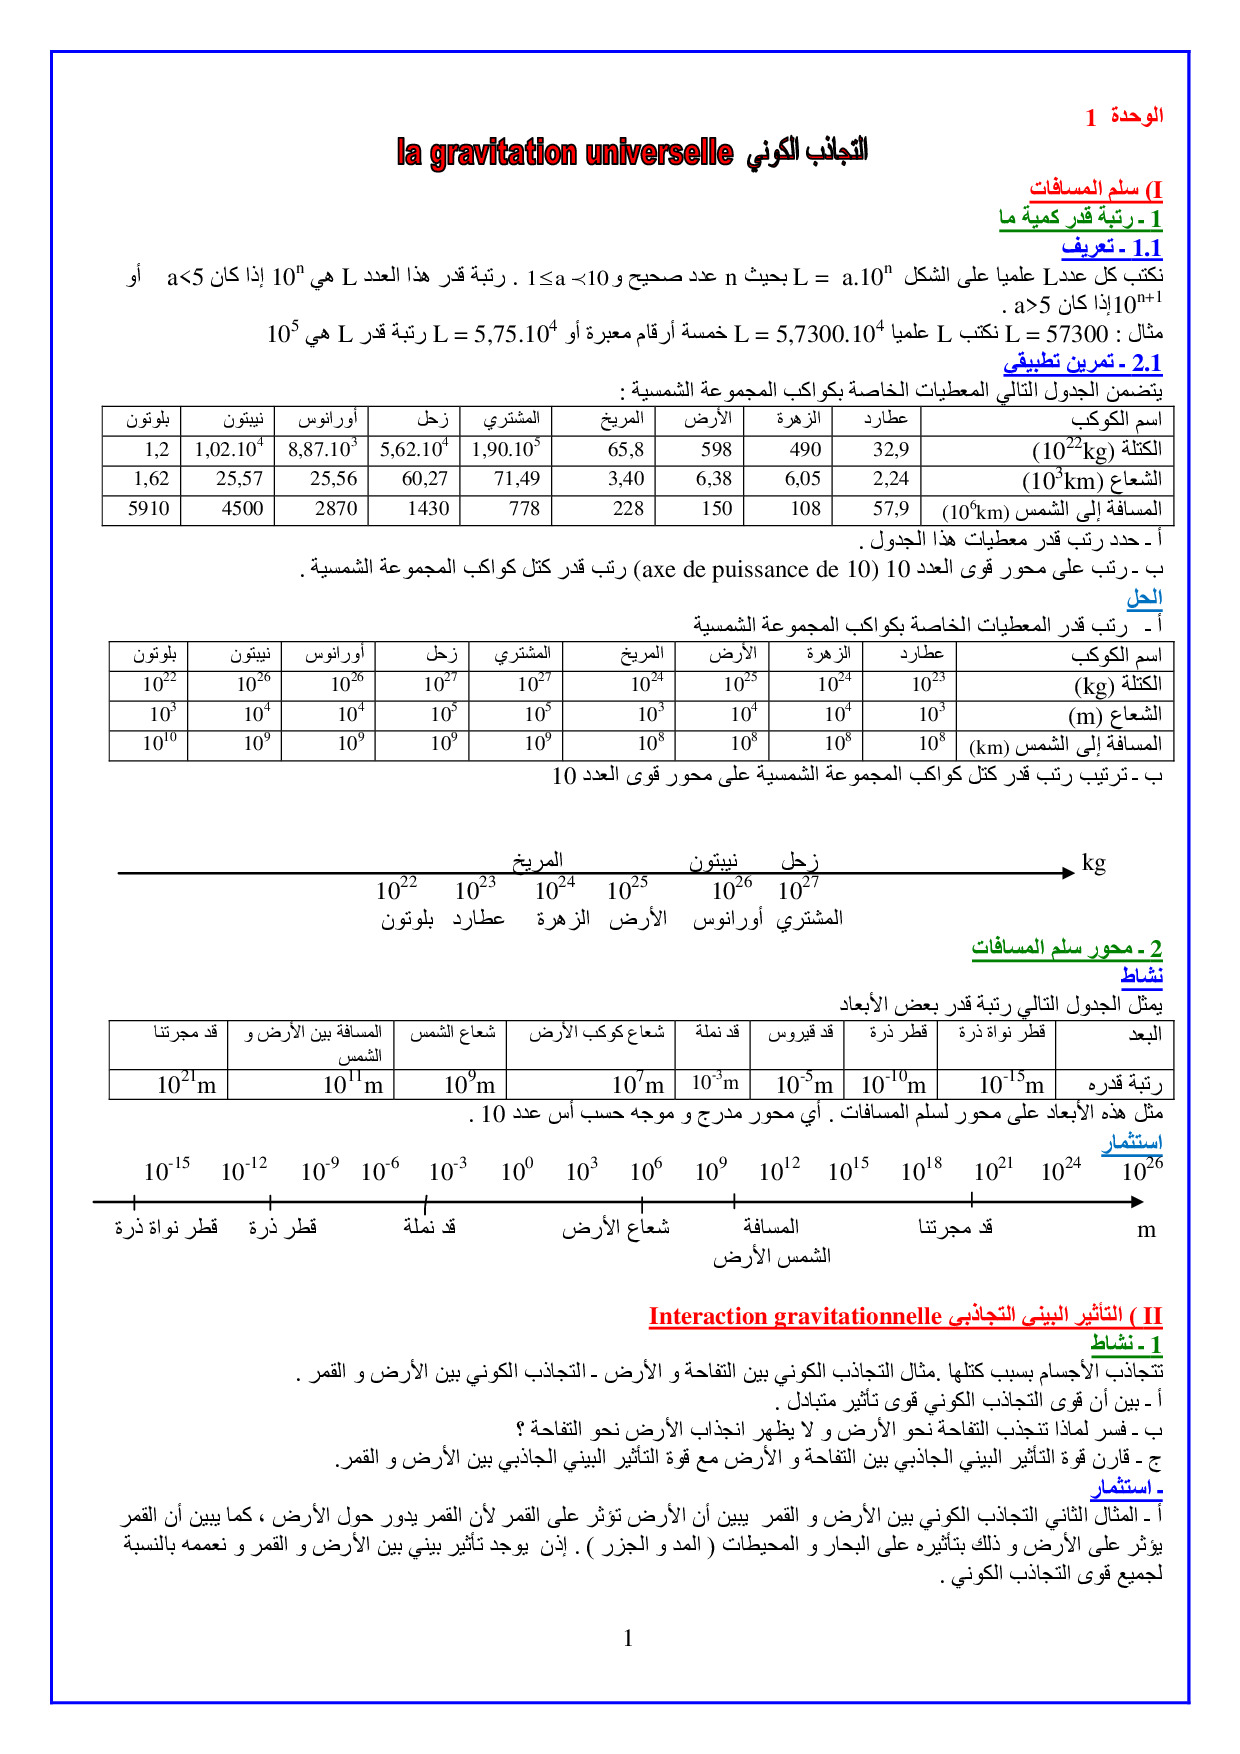 الوحدة 1
التجاذب الكوني la gravitation universelle
I) سلم المسافات
1 ـ رتبة قدر كمية ما
1.1 ـ تعريف
نكتب كل عددL علميا على الشكل L = a.10ⁿ بحيث n عدد صحيح و 1≤a≺10 . رتبة قدر هذا العدد L هي 10ⁿ إذا كان a<5 أو
10ⁿ⁺¹إذا كان a>5 .
مثال : L = 57300 نكتب L علميا L = 5,7300.10⁴ خمسة أرقام معبرة أو L = 5,75.10⁴ رتبة قدر L هي 10⁵
2.1 ـ تمرين تطبيقي
يتضمن الجدول التالي المعطيات الخاصة بكواكب المجموعة الشمسية :
اسم الكوكب عطارد الزهرة الأرض المريخ المشتري زحل أورانوس نيبتون بلوتون
الكتلة (10²²kg) 32,9 490 598 65,8 1,90.10⁵ 5,62.10⁴ 8,87.10³ 1,02.10⁴ 1,2
الشعاع (10³km) 2,24 6,05 6,38 3,40 71,49 60,27 25,56 25,57 1,62
المسافة إلى الشمس (10⁶km) 57,9 108 150 228 778 1430 2870 4500 5910
أ ـ حدد رتب قدر معطيات هذا الجدول .
ب ـ رتب على محور قوى العدد 10 (axe de puissance de 10) رتب قدر كتل كواكب المجموعة الشمسية .
الحل
أ ـ رتب قدر المعطيات الخاصة بكواكب المجموعة الشمسية
اسم الكوكب عطارد الزهرة الأرض المريخ المشتري زحل أورانوس نيبتون بلوتون
الكتلة (kg) 10²³ 10²⁴ 10²⁵ 10²⁴ 10²⁷ 10²⁷ 10²⁶ 10²⁶ 10²²
الشعاع (m) 10³ 10⁴ 10⁴ 10³ 10⁵ 10⁵ 10⁴ 10⁴ 10³
المسافة إلى الشمس (km) 10⁸ 10⁸ 10⁸ 10⁸ 10⁹ 10⁹ 10⁹ 10⁹ 10¹⁰
ب ـ ترتيب رتب قدر كتل كواكب المجموعة الشمسية على محور قوى العدد 10
المريخ نيبتون زحل kg
10²² 10²³ 10²⁴ 10²⁵ 10²⁶ 10²⁷
بلوتون عطارد الزهرة الأرض أورانوس المشتري
2 ـ محور سلم المسافات
نشاط
يمثل الجدول التالي رتبة قدر بعض الأبعاد
البعد قطر نواة ذرة قطر ذرة قد قيروس قد نملة شعاع كوكب الأرض شعاع الشمس المسافة بين الأرض و الشمس قد مجرتنا
رتبة قدره 10⁻¹⁵m 10⁻¹⁰m 10⁻⁵m 10⁻³m 10⁷m 10⁹m 10¹¹m 10²¹m
مثل هذه الأبعاد على محور لسلم المسافات . أي محور مدرج و موجه حسب أس عدد 10 .
استثمار
10⁻¹⁵ 10⁻¹² 10⁻⁹ 10⁻⁶ 10⁻³ 10⁰ 10³ 10⁶ 10⁹ 10¹² 10¹⁵ 10¹⁸ 10²¹ 10²⁴ 10²⁶
قطر نواة ذرة قطر ذرة قد نملة شعاع الأرض المسافة قد مجرتنا m
الشمس الأرض
II ) التأثير البيني التجاذبي Interaction gravitationnelle
1 ـ نشاط
تتجاذب الأجسام بسبب كتلها .مثال التجاذب الكوني بين التفاحة و الأرض ـ التجاذب الكوني بين الأرض و القمر .
أ ـ بين أن قوى التجاذب الكوني قوى تأثير متبادل .
ب ـ فسر لماذا تنجذب التفاحة نحو الأرض و لا يظهر انجذاب الأرض نحو التفاحة ؟
ج ـ قارن قوة التأثير البيني الجاذبي بين التفاحة و الأرض مع قوة التأثير البيني الجاذبي بين الأرض و القمر.
ـ استثمار
أ ـ المثال الثاني التجاذب الكوني بين الأرض و القمر يبين أن الأرض تؤثر على القمر لأن القمر يدور حول الأرض ، كما يبين أن القمر
يؤثر على الأرض و ذلك بتأثيره على البحار و المحيطات ( المد و الجزر ) . إذن يوجد تأثير بيني بين الأرض و القمر و نعممه بالنسبة
لجميع قوى التجاذب الكوني .
1